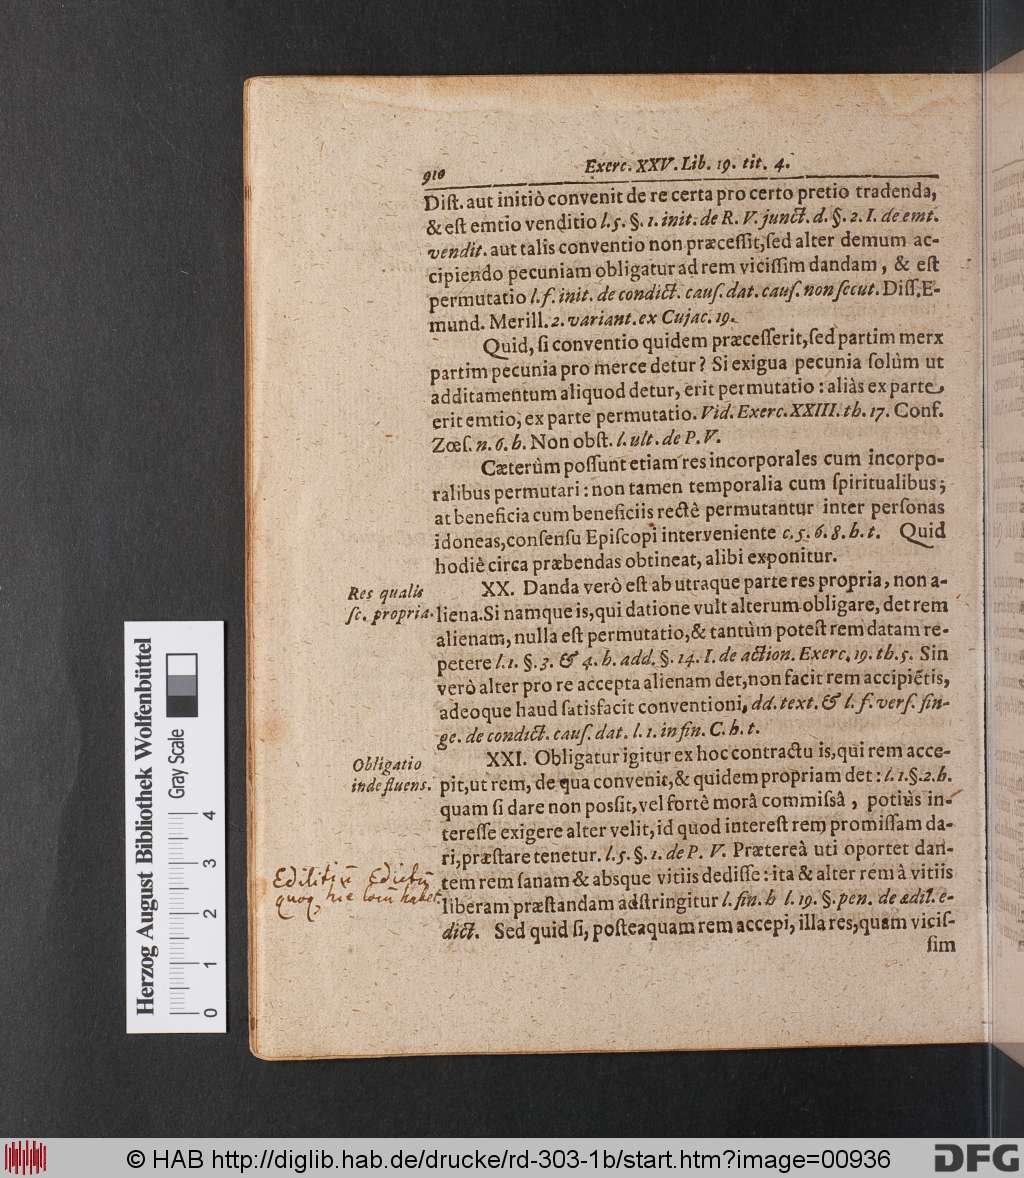 910 Exerc. XXV. Lib. 19. tit. 4.
Diſt. aut initiò convenit de re certa pro certo pretio tradenda,
& eſt emtio venditio l. 5. §. 1. init. de R. V. junct. d. §. 2. I. de emt.
vendit. aut talis conventio non præceſſit, ſed alter demum ac-
cipiendo pecuniam obligatur ad rem viciſſim dandam, & eſt
permutatio l. f. init. de condict. cauſ. dat. cauſ. non ſecut. Diſſ. E-
mund. Merill. 2. variant. ex Cujac. 19.
Quid, ſi conventio quidem præceſſerit, ſed partim merx
partim pecunia pro merce detur? Si exigua pecunia ſolùm ut
additamentum aliquod detur, erit permutatio: aliàs ex parte
erit emtio, ex parte permutatio. Vid. Exerc. XXIII. th. 17. Conf.
Zœſ. n. 6. h. Non obſt. l. ult. de P. V.
Cæterùm poſſunt etiam res incorporales cum incorpo-
ralibus permutari: non tamen temporalia cum ſpiritualibus;
at beneficia cum beneficiis rectè permutantur inter perſonas
idoneas, conſenſu Epiſcopi interveniente c. 5. 6. 8. h. t. Quid
hodiè circa præbendas obtineat, alibi exponitur.
Res qualis
ſc. propria.
XX. Danda verò eſt ab utraque parte res propria, non a-
liena. Si namque is, qui datione vult alterum obligare, det rem
alienam, nulla eſt permutatio, & tantùm poteſt rem datam re-
petere l. 1. §. 3. & 4. h. add. §. 14. I. de action. Exerc. 19. th. 5. Sin
verò alter pro re accepta alienam det, non facit rem accipiẽtis,
adeoque haud ſatisfacit conventioni, dd. text. & l. f. verſ. fin-
ge. de condict. cauſ. dat. l. 1. in fin. C. h. t.
Obligatio
inde fluens.
XXI. Obligatur igitur ex hoc contractu is, qui rem acce-
pit, ut rem, de qua convenit, & quidem propriam det: l. 1. §. 2. h.
quam ſi dare non poſſit, vel fortè morâ commiſsâ, potiùs in-
tereſſe exigere alter velit, id quod intereſt rem promiſſam da-
ri, præſtare tenetur. l. 5. §. 1. de P. V. Prætereà uti oportet dan-
tem rem ſanam & absque vitiis dediſſe: ita & alter rem à vitiis
liberam præſtandam adſtringitur l. fin. h l. 19. §. pen. de ædil. e-
dict. Sed quid ſi, poſteaquam rem accepi, illa res, quam viciſ-
ſim
Edilitiũ Edictũ
quoq, hic locũ habet.
Herzog August Bibliothek Wolfenbüttel
Gray Scale
0 1 2 3 4
© HAB http://diglib.hab.de/drucke/rd-303-1b/start.htm?image=00936
DFG